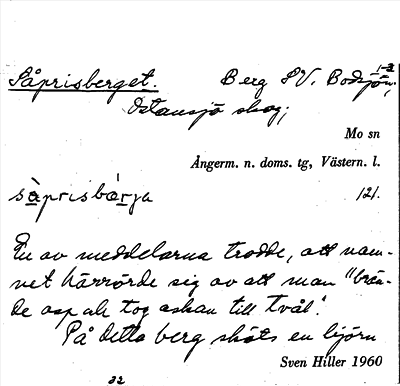 1-2
Såprisberget. Berg SV. Bodsjön,
Östansjö skog;
Mo sn
Ångerm. n. doms. tg, Västern. l.
såprisbärja 121.
En av meddelarna trodde, att nam-
net härrörde sig av att man "brän-
de asp ok tog askan till tvål".
På detta berg sköts en björn
Sven Hiller 1960
32